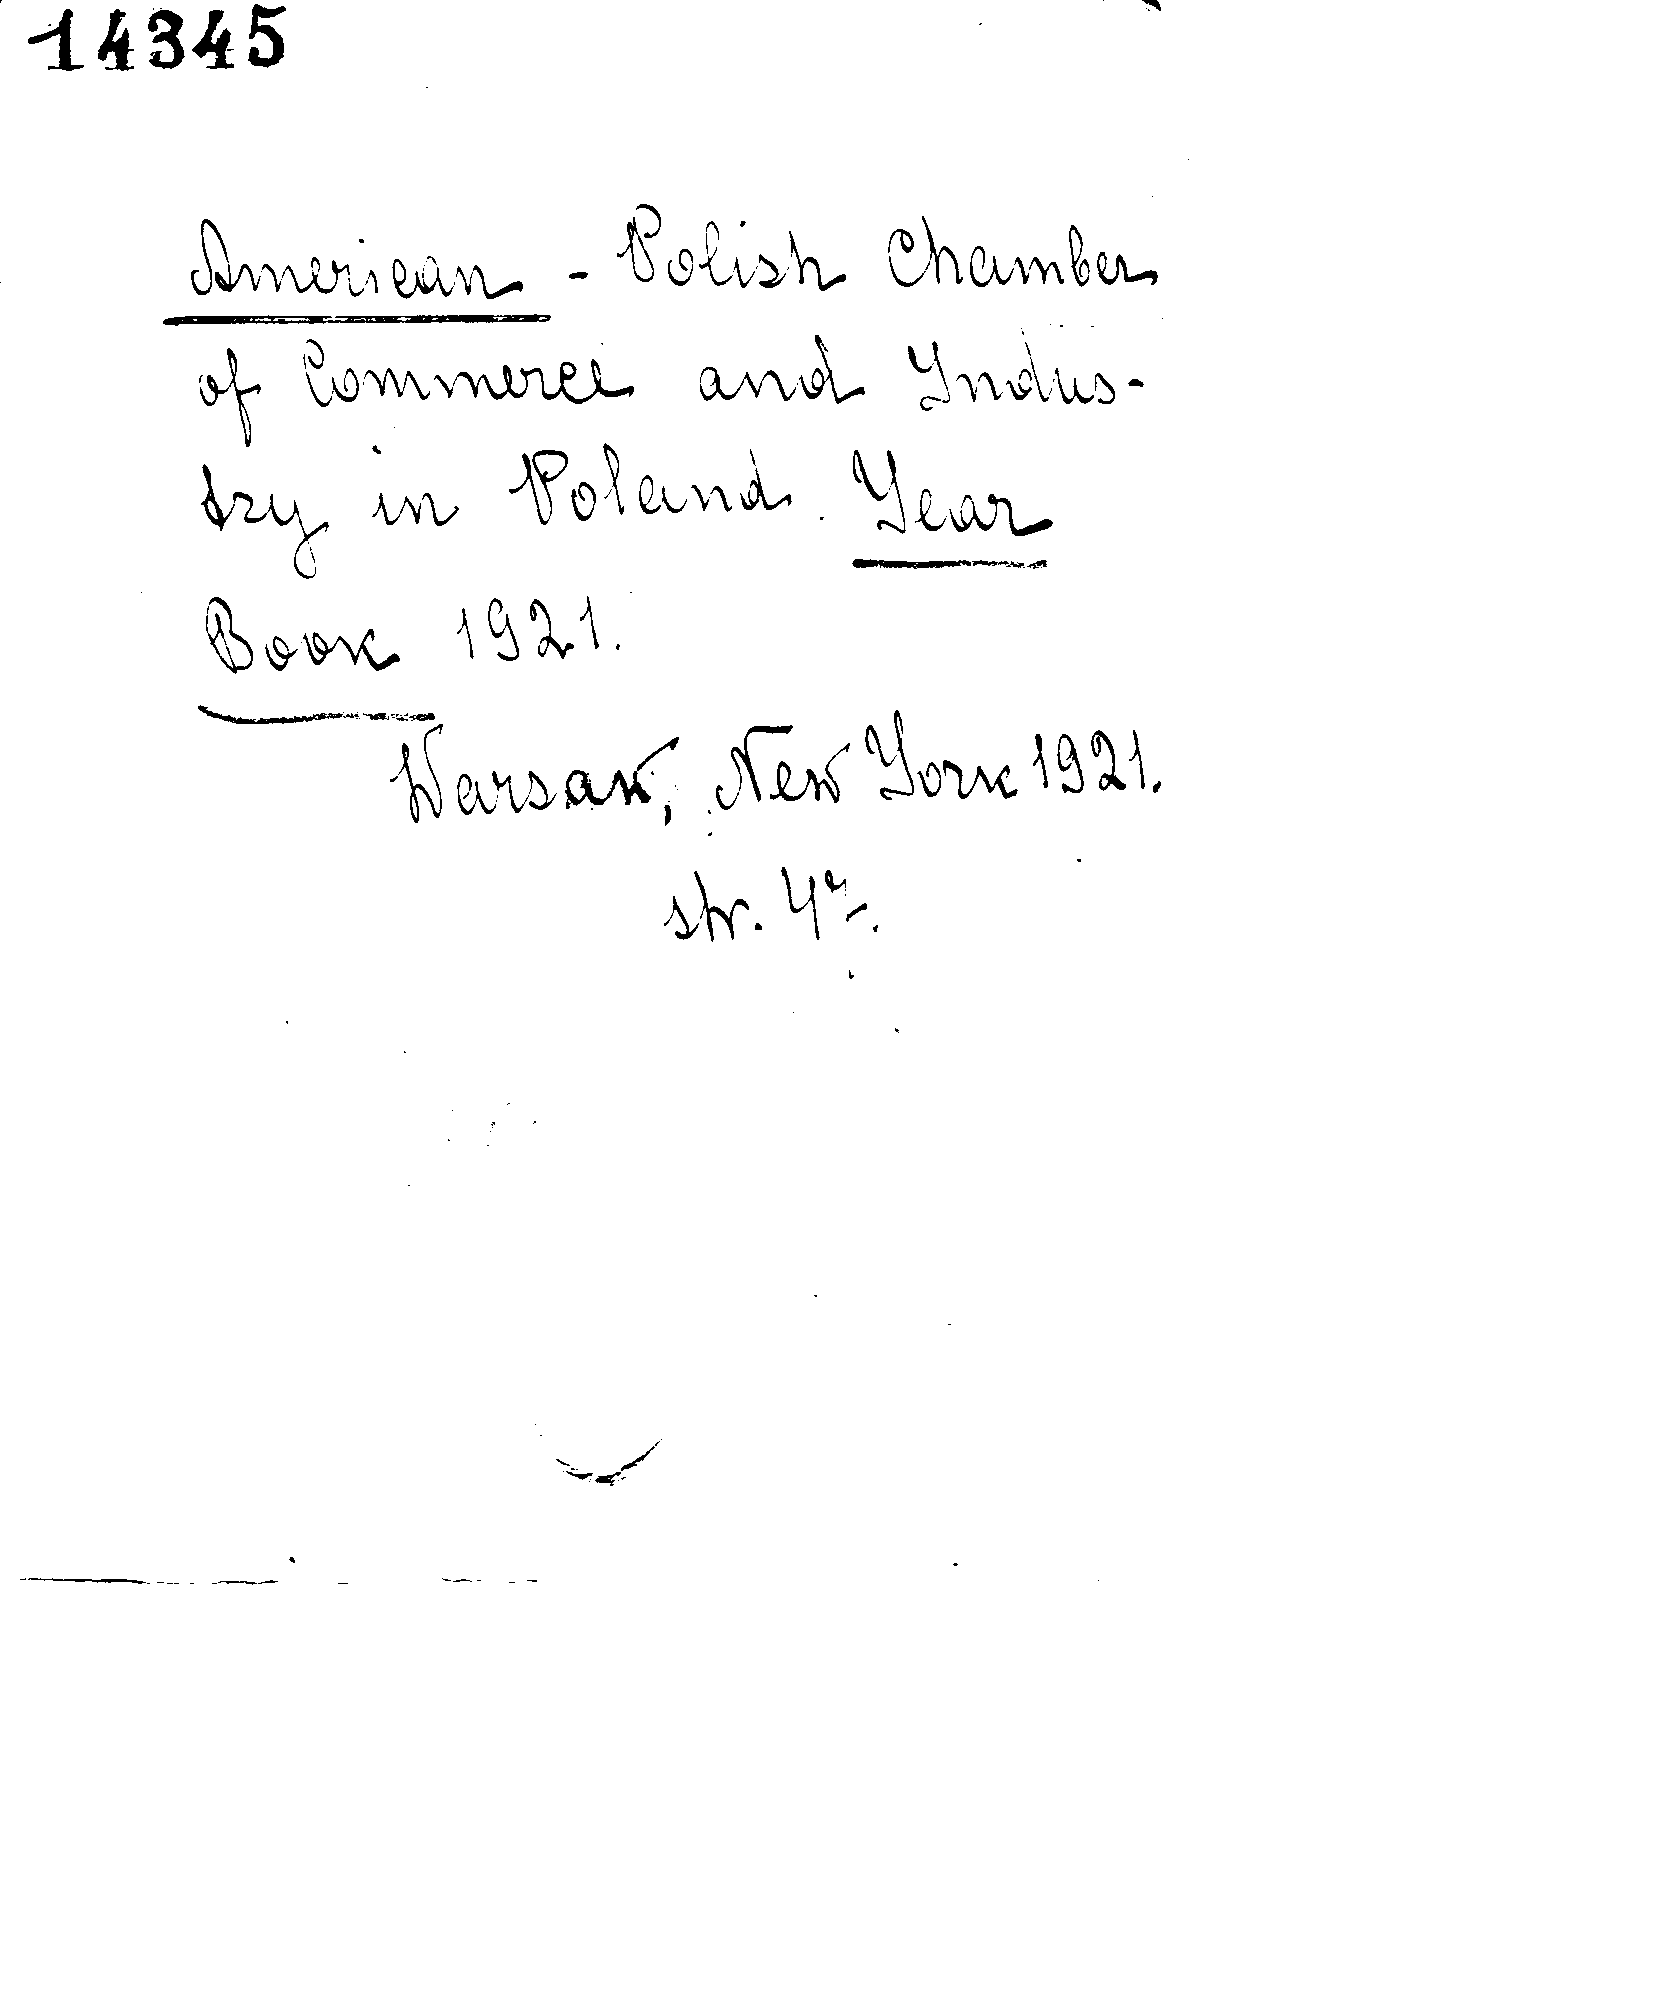 14345
American - Polish Chamber
of Commerce and Indus-
try in Poland. Year
Book 1921.
Warsaw, New York 1921.
str.